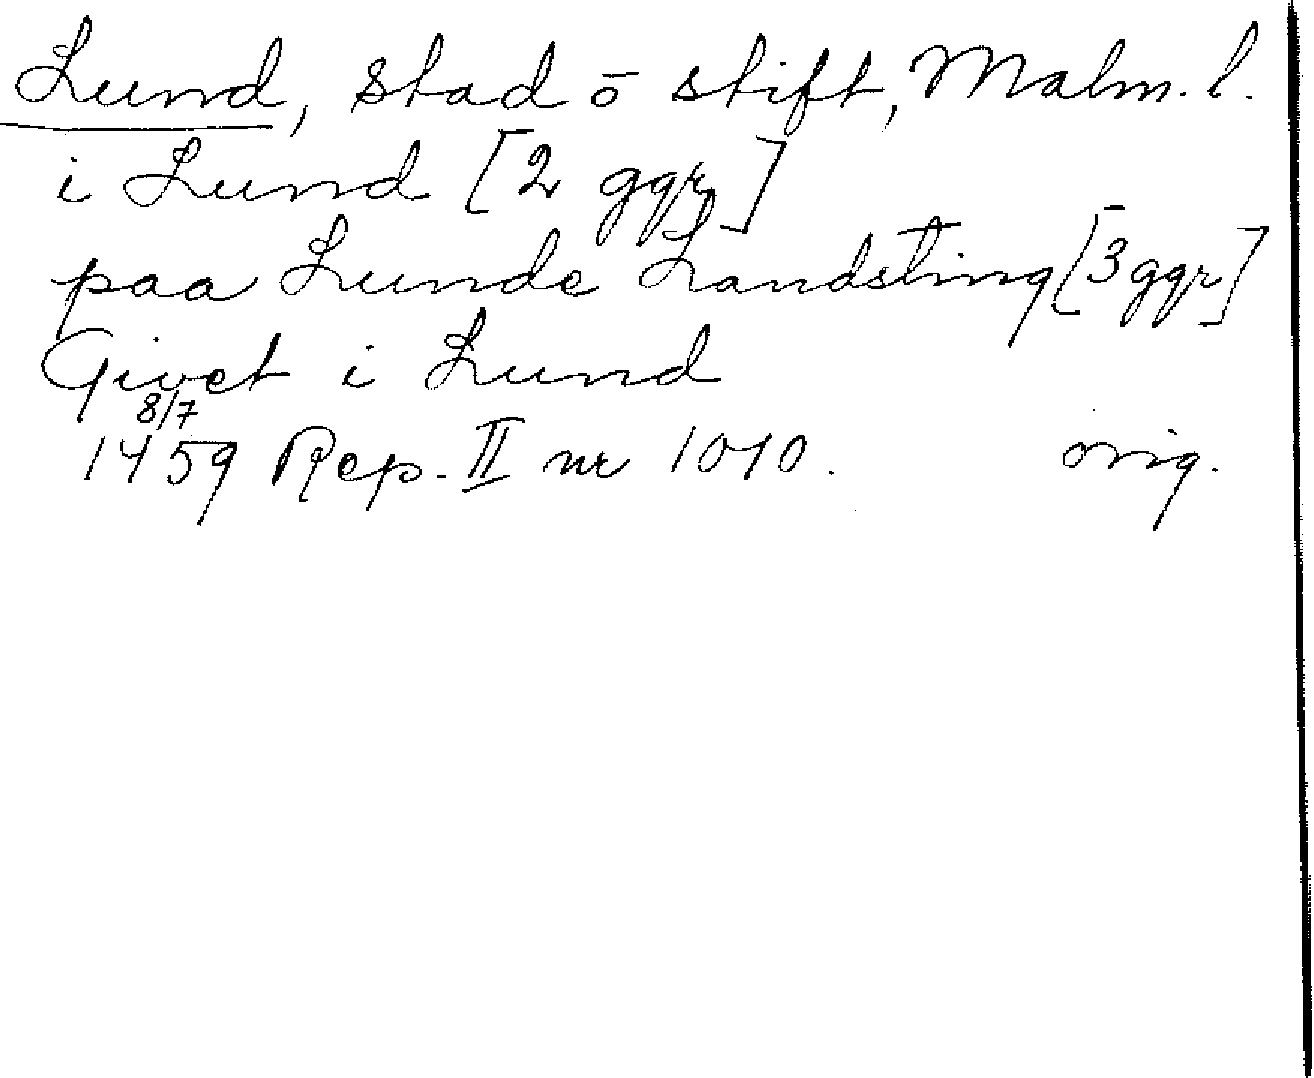 Lund, stad o stift, Malm. l.
i Lund [2 ggr]
paa Lunde Landsting [3 ggr]
Givet i Lund
8/7
1459 Rep. II nr 1010. orig.